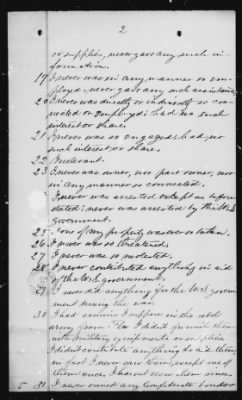 2
or supplies, never gave any such in-
formation.
19 I never was in any manner so em-
ployed, never gave any such assistance
20 I never was directly or indirectly so con-
nected or employed; had no such
interest or share.
21 I never was so engaged; had no
such interest or share.
22 Irrelevant.
23 I never was owner, nor part owner, nor
in any manner so connected.
I never was arrested except as before
stated; never was arrested by the U.S.
government.
25 None of my property was ever so taken.
26 I never was so threatened.
27 I never was so molested.
28 I never contributed anything in aid
of the U.S. government.
29 I never did anything for the U.S. govern-
ment during the war.
30 I had cousins I suppose in the
army from I did furnish them
with military equipments or
I didn't contribute anything to aid them
in fact I never saw them, except one of
them once. I haven't seen them since
5 31 I never owned any Confederate bonds or